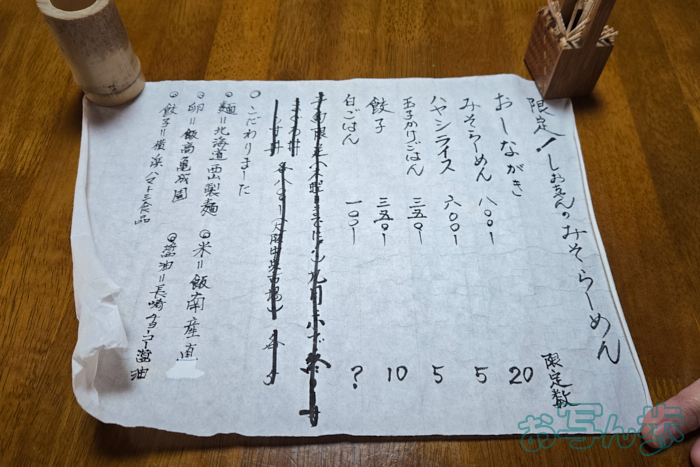 限定！みそらーめん
限定数
おしながき
みそらーめん 八〇〇ー 20
ハヤシライス 六〇〇ー 5
玉子かけごはん 三五〇ー 5
餃子 三五〇ー 10
白ごはん 一〇〇ー ?
〇こだわりました
◎麺=北海道西山製麺
◎卵=飯高亀成園 ◎米=飯南産直
◎餃子=横浜ハマトミ食品 ◎醤油=長崎チョーコー醤油
お写ん歩